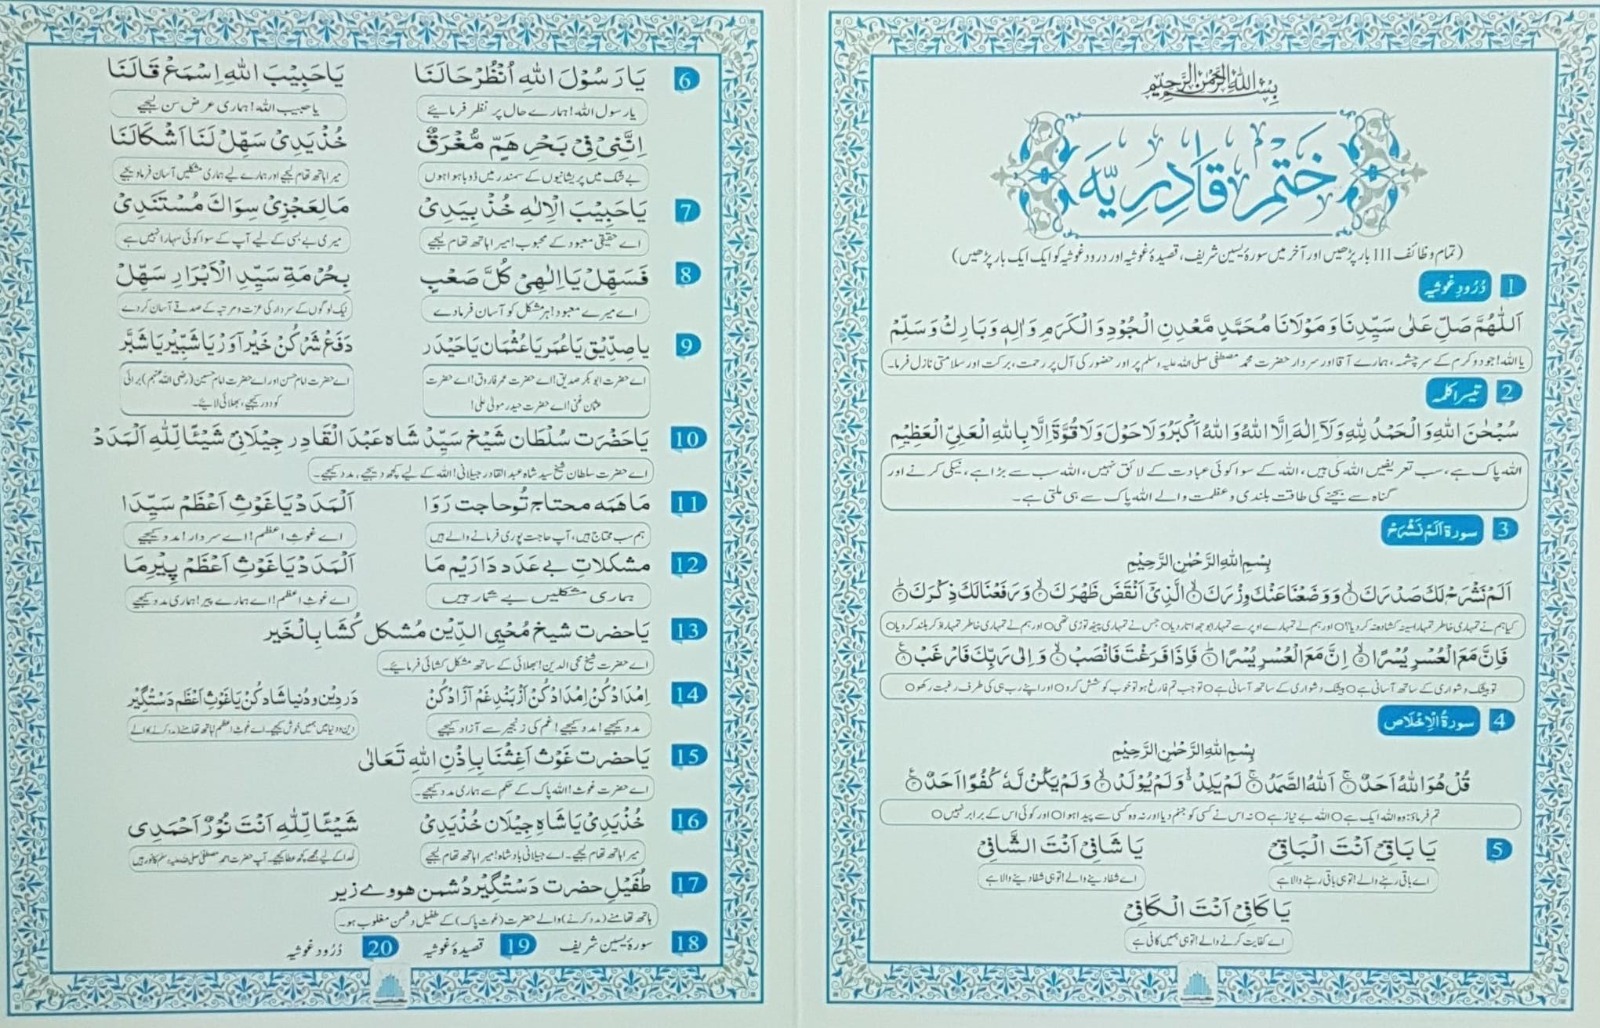 بِسْمِ اللهِ الرَّحْمٰنِ الرَّحِيْمِ
خَتْمِ قَادِرِیَّہ
(تمام وظائف 111 بار پڑھیں اور آخر میں سورۂ یٰسین شریف، قصیدۂ غوثیہ اور درود غوثیہ کو ایک ایک بار پڑھیں)
1 دُرُودِ غوثیہ
اَللّٰهُمَّ صَلِّ عَلٰى سَيِّدِنَا وَمَوْلَانَا مُحَمَّدٍ مَّعْدِنِ الْجُوْدِ وَالْكَرَمِ وَاٰلِهٖ وَبَارِكْ وَسَلِّمْ
یا اللہ! جود و کرم کے سرچشمہ، ہمارے آقا اور سردار حضرت محمد مصطفی صلی اللہ علیہ وسلم پر اور حضور کی آل پر رحمت، برکت اور سلامتی نازل فرما۔
2 تیسرا کلمہ
سُبْحٰنَ اللهِ وَالْحَمْدُ لِلّٰهِ وَلَآ اِلٰهَ اِلَّا اللهُ وَاللهُ اَكْبَرُ وَلَا حَوْلَ وَلَا قُوَّةَ اِلَّا بِاللهِ الْعَلِيِّ الْعَظِيْمِ
اللہ پاک ہے، سب تعریفیں اللہ کی ہیں، اللہ کے سوا کوئی عبادت کے لائق نہیں، اللہ سب سے بڑا ہے، نیکی کرنے اور
گناہ سے بچنے کی طاقت بلندی و عظمت والے اللہ پاک سے ہی ملتی ہے۔
3 سورۃ اَلَمْ نَشْرَحْ
بِسْمِ اللهِ الرَّحْمٰنِ الرَّحِيْمِ
اَلَمْ نَشْرَحْ لَكَ صَدْرَكَ ۙ وَوَضَعْنَا عَنْكَ وِزْرَكَ ۙ الَّذِيْٓ اَنْقَضَ ظَهْرَكَ ۙ وَرَفَعْنَا لَكَ ذِكْرَكَ ؕ
کیا ہم نے تمہاری خاطر تمہارا سینہ کشادہ نہ کر دیا؟ اور ہم نے تمہارے اوپر سے تمہارا بوجھ اتار دیا جس نے تمہاری پیٹھ توڑی تھی اور ہم نے تمہاری خاطر تمہارا ذکر بلند کر دیا
فَاِنَّ مَعَ الْعُسْرِ يُسْرًا ۙ اِنَّ مَعَ الْعُسْرِ يُسْرًا ؕ فَاِذَا فَرَغْتَ فَانْصَبْ ۙ وَاِلٰى رَبِّكَ فَارْغَبْ
تو بیشک دشواری کے ساتھ آسانی ہے بیشک دشواری کے ساتھ آسانی ہے تو جب تم فارغ ہو تو خوب کوشش کرو اور اپنے رب ہی کی طرف رغبت رکھو
4 سورۃُ الْاِخْلَاص
بِسْمِ اللهِ الرَّحْمٰنِ الرَّحِيْمِ
قُلْ هُوَ اللهُ اَحَدٌ ۚ اَللهُ الصَّمَدُ ۚ لَمْ يَلِدْ ۙ وَلَمْ يُوْلَدْ ۙ وَلَمْ يَكُنْ لَّهٗ كُفُوًا اَحَدٌ
تم فرماؤ: وہ اللہ ایک ہے اللہ بے نیاز ہے نہ اس نے کسی کو جنم دیا اور نہ وہ کسی سے پیدا ہوا اور کوئی اس کے برابر نہیں
5 يَا بَاقِيْ اَنْتَ الْبَاقِيْ يَا شَافِيْ اَنْتَ الشَّافِيْ
اے باقی رہنے والے! تو ہی باقی رہنے والا ہے اے شفا دینے والے! تو ہی شفا دینے والا ہے
يَا كَافِيْ اَنْتَ الْكَافِيْ
اے کفایت کرنے والے! تو ہی ہمیں کافی ہے
6 يَا رَسُوْلَ اللهِ اُنْظُرْ حَالَنَا يَا حَبِيْبَ اللهِ اِسْمَعْ قَالَنَا
یا رسول اللہ! ہمارے حال پر نظر فرمائیے یا حبیب اللہ! ہماری عرض سن لیجیے
اِنَّنِيْ فِيْ بَحْرِ هَمٍّ مُّغْرَقٌ خُذْ يَدِيْ سَهِّلْ لَنَا اَشْكَالَنَا
بے شک میں پریشانیوں کے سمندر میں ڈوبا ہوا ہوں میرا ہاتھ تھام لیجیے اور ہمارے لیے ہماری مشکلیں آسان فرما دیجیے
7 يَا حَبِيْبَ الْاِلٰهِ خُذْ بِيَدِيْ مَا لِعَجْزِيْ سِوَاكَ مُسْتَنَدِيْ
اے حقیقی معبود کے محبوب! میرا ہاتھ تھام لیجیے میری بے بسی کے لیے آپ کے سوا کوئی سہارا نہیں ہے
8 فَسَهِّلْ يَا اِلٰهِيْ كُلَّ صَعْبٍ بِحُرْمَةِ سَيِّدِ الْاَبْرَارِ سَهِّلْ
اے میرے معبود! ہر مشکل کو آسان فرما دے نیک لوگوں کے سردار کی عزت و مرتبہ کے صدقے آسان کر دے
9 یا صدِّیق یا عُمَر یا عُثمَان یا حَیدَر دَفعِ شَر کُن خَیْر آوَر یَا شَبِّیر یَا شَبَّر
اے حضرت ابو بکر صدیق! اے حضرت عمر فاروق! اے حضرت اے حضرت امام حسن اور اے حضرت امام حسین (رضی اللہ عنہم) برائی
عثمان غنی! اے حضرت حیدر مولیٰ علی! کو دور کیجیے، بھلائی لائیے۔
10 یَا حَضْرَت سُلْطَان شَیْخ سَیِّد شَاہ عَبْدَ الْقَادِر جِیْلَانِیْ شَیْئًا لِلّٰهِ اَلْمَدَدْ
اے حضرت سلطان شیخ سید شاہ عبد القادر جیلانی! اللہ کے لیے کچھ دیجیے، مدد کیجیے۔
11 مَا هَمَه محتاج تُو حاجت رَوَا اَلْمَدَدْ يَا غَوْثِ اَعْظَمْ سَيِّدَا
ہم سب محتاج ہیں، آپ حاجت پوری فرمانے والے ہیں اے غوثِ اعظم! اے سردار! مدد کیجیے
12 مشکلاتِ بے عَدَد دَارَیم مَا اَلْمَدَدْ يَا غَوْثِ اَعْظَمْ پِیْرِ مَا
ہماری مشکلیں بے شمار ہیں اے غوثِ اعظم! اے ہمارے پیر! ہماری مدد کیجیے
13 یَا حضرت شیخ مُحْیِ الدِّیْن مُشکل کُشَا بِالْخَیْر
اے حضرت شیخ محی الدین! بھلائی کے ساتھ مشکل کشائی فرمائیے۔
14 اِمْدَادْ کُنْ اِمْدَادْ کُنْ اَزْ بَنْدِ غَمْ آزَادْ کُنْ دَر دِین و دُنیا شَاد کُنْ یَا غَوْثِ اَعْظَم دَسْتگِیْر
مدد کیجیے! مدد کیجیے! غم کی زنجیر سے آزاد کیجیے دین و دنیا میں ہمیں خوش کیجیے۔ اے غوث اعظم! ہاتھ تھامنے (مدد کرنے) والے
15 یَا حضرت غَوْث اَغِثْنَا بِاِذْنِ اللهِ تَعَالٰی
اے حضرت غوث! اللہ پاک کے حکم سے ہماری مدد کیجیے۔
16 خُذْ یَدِیْ یَا شَاہِ جِیْلَان خُذْ یَدِیْ شَیْئًا لِلّٰهِ اَنْتَ نُوْرٌ اَحْمَدِی
میرا ہاتھ تھام لیجیے۔ اے جیلانی بادشاہ! میرا ہاتھ تھام لیجیے اللہ کے لیے مجھے کچھ عطا کیجیے۔ آپ حضرت احمد مصطفی صلی اللہ علیہ وسلم کا نور ہیں
17 طُفَیْلِ حضرت دَسْتگِیْر دُشمن هووے زیر
ہاتھ تھامنے (مدد کرنے) والے حضرت (غوث پاک) کے طفیل دشمن مغلوب ہو۔
18 سورۂ یٰسین شریف 19 قصیدۂ غوثیہ 20 دُرُود غوثیہ